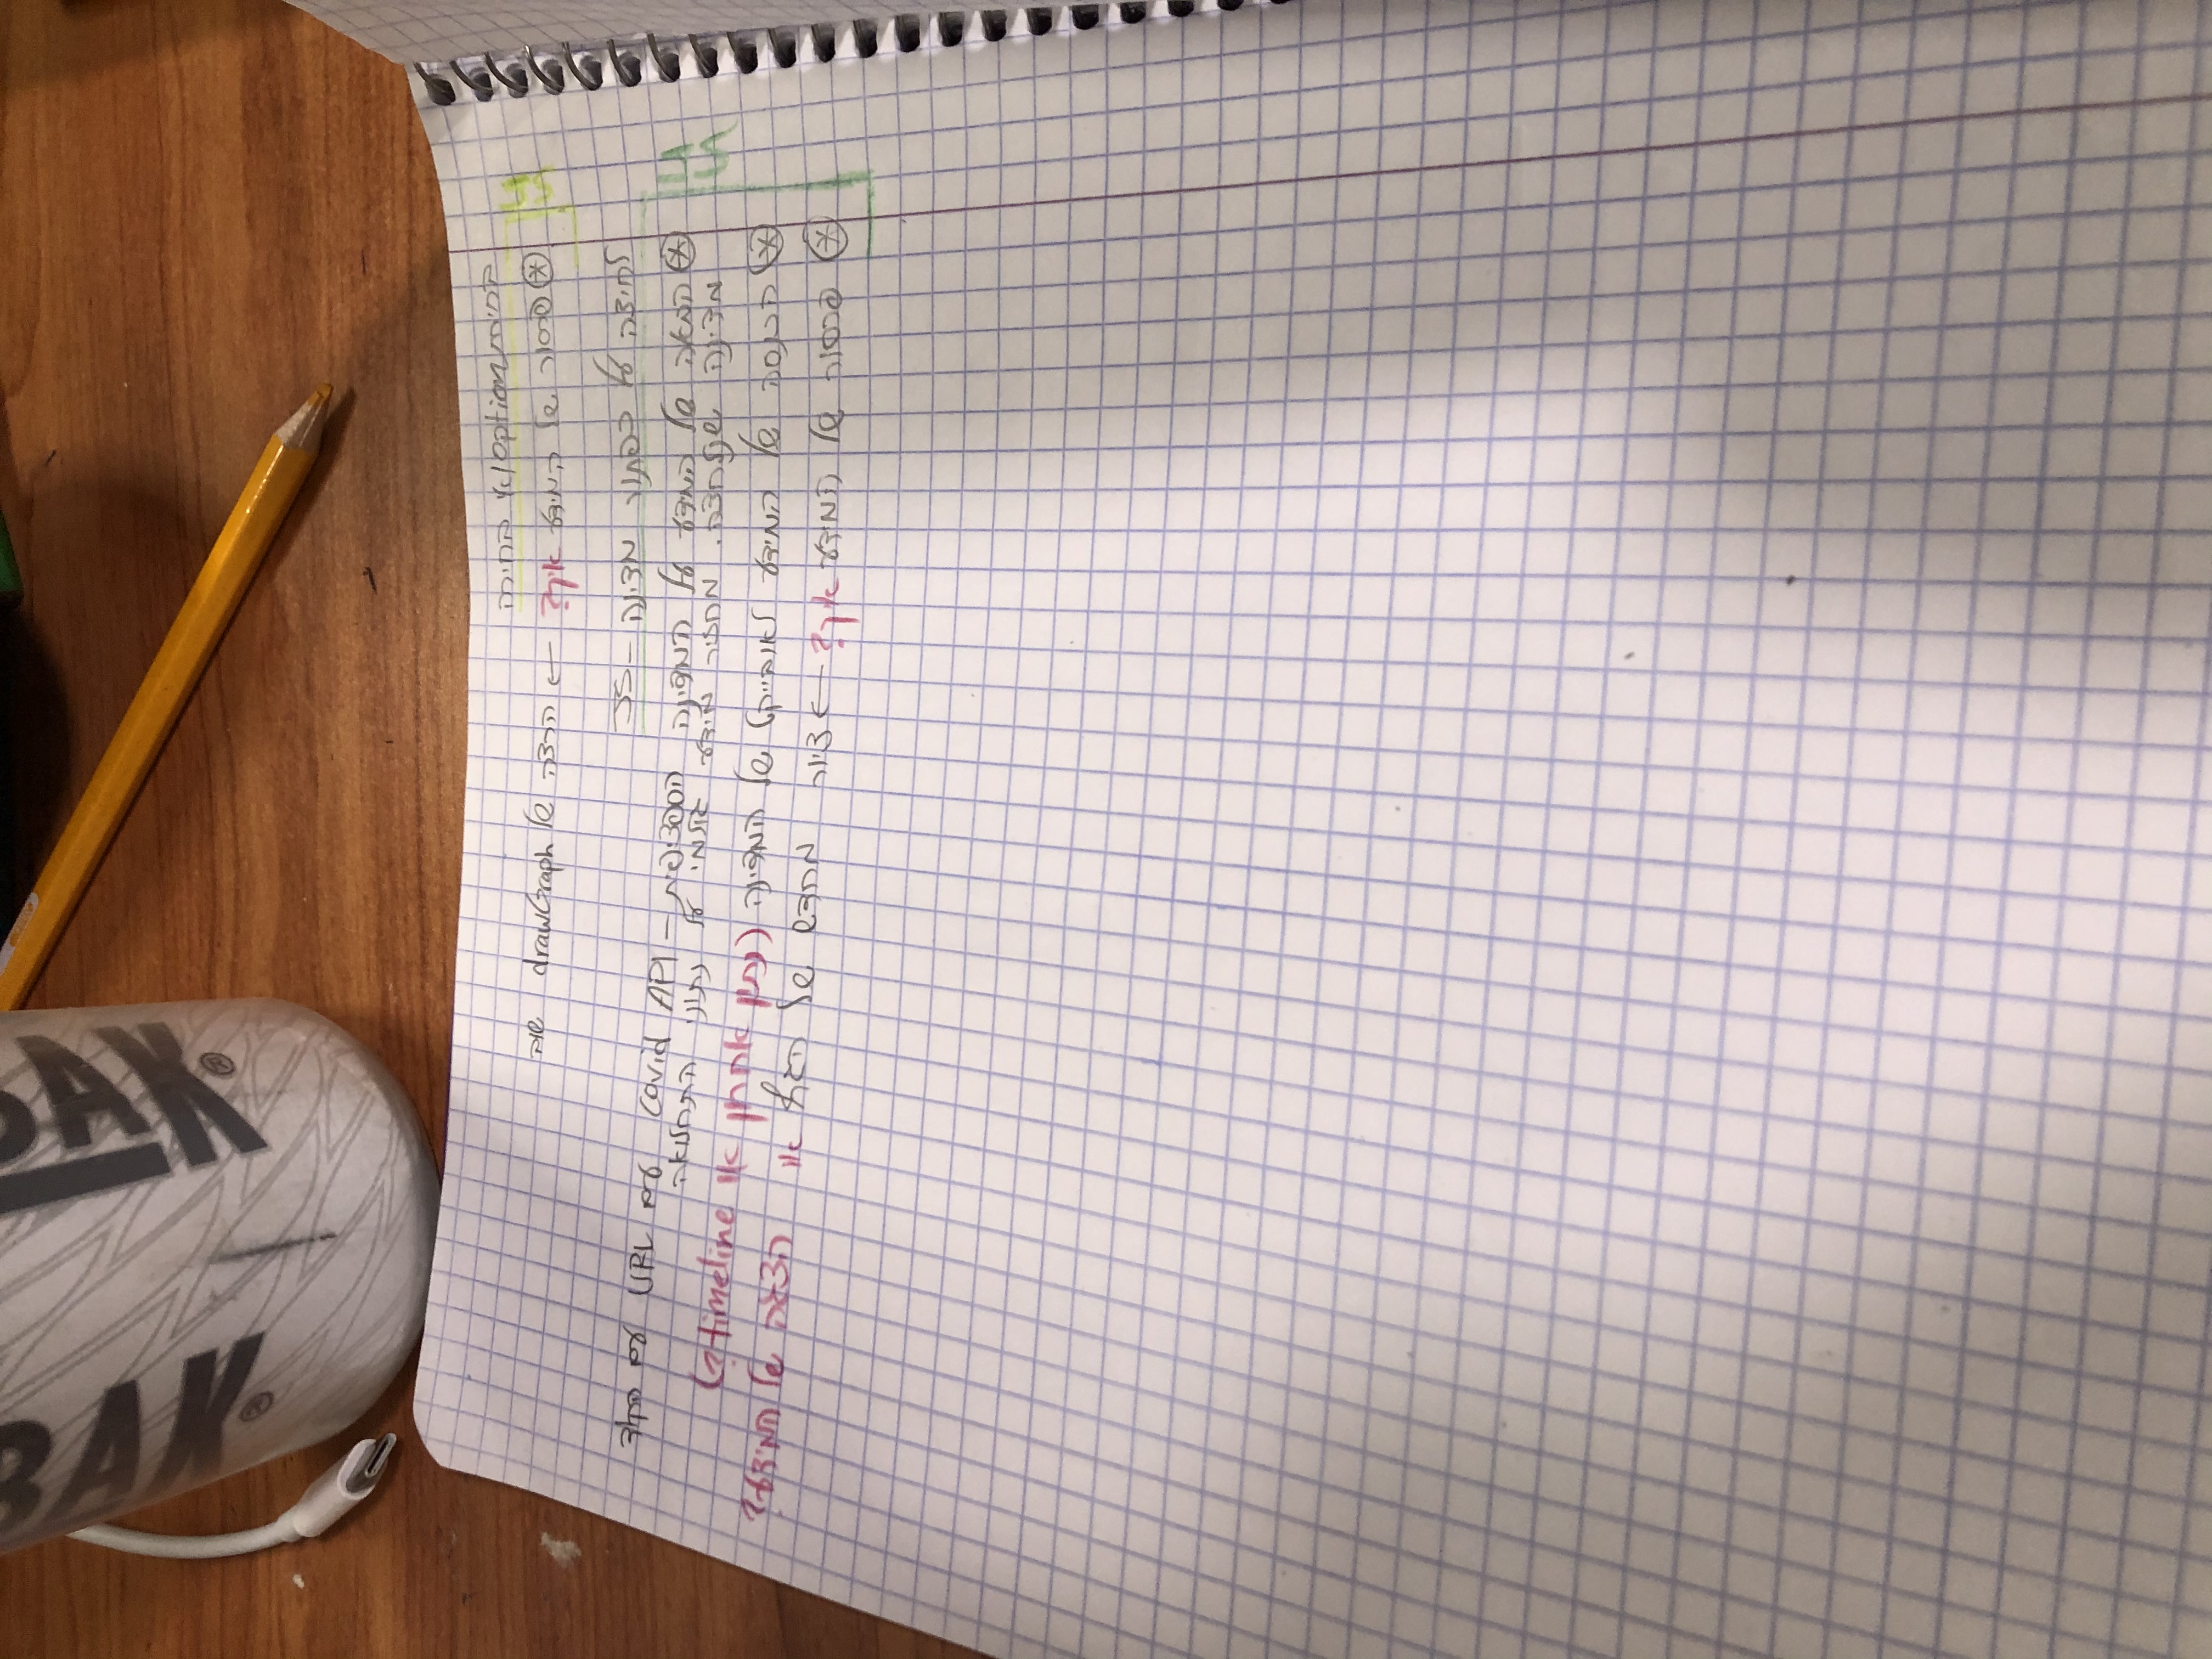 BAK®
DAK®
בחירת option/אין בחירה
פרסור של המידע איך? ← הרצה של drawGraph שוב
לחיצה על כפתור מדינה - JS
המאה של המידע על המדינה הספציפית - covid API עם URL עם הקוד
מדינה שנלחצה. מחזיר מידע על נתוני התחלואה
הכנסה של המידע לאובייקט של המדינה (נתון אחרון או timeline?)
פרסור של המידע איך? ← ציור מחדש של הגרף או הצגה של המידע?